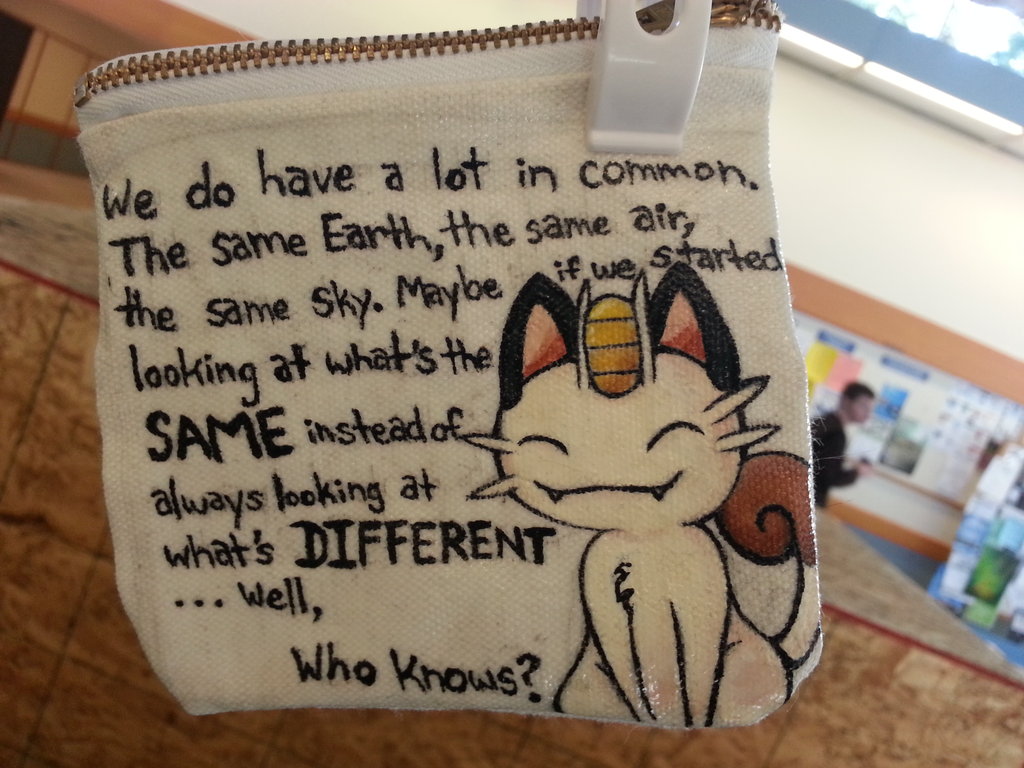 We do have a lot in common.
The same Earth, the same air,
the same sky. Maybe if we started
looking at what's the
SAME instead of
always looking at
what's DIFFERENT
... well,
Who Knows?